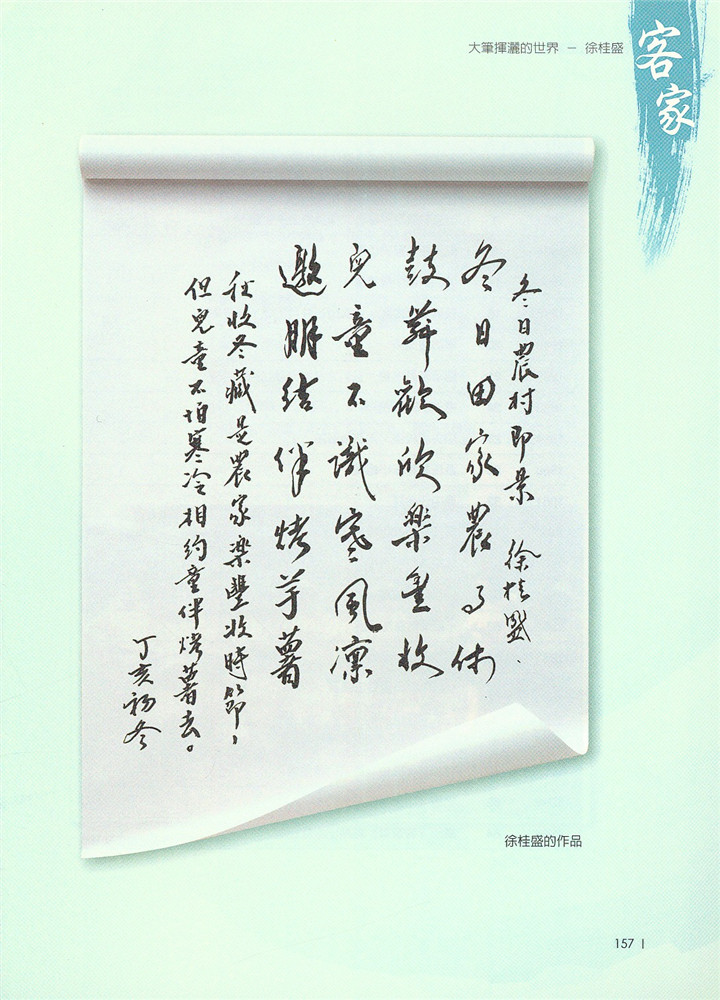 大筆揮灑的世界 － 徐桂盛
客家
冬日農村即景 徐桂盛.
冬日田家農事休
鼓舞歡欣樂豐收
兒童不識寒風凜
邀朋結伴烤芋薯
秋收冬藏是農家樂豐收時節，
但兒童不怕寒冷相約童伴烤薯去。
丁亥初冬
徐桂盛的作品
157